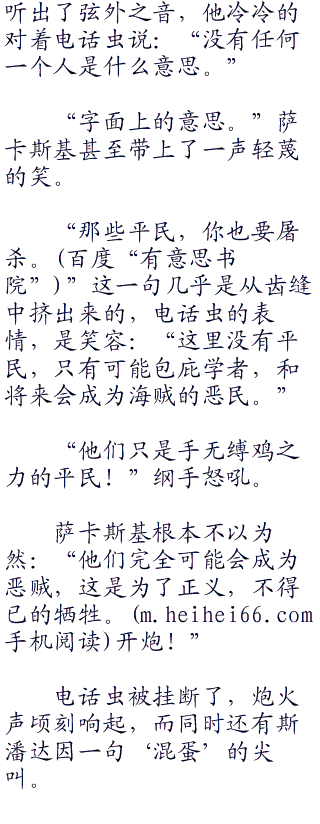 听出了弦外之音，他冷冷的
对着电话虫说：“没有任何
一个人是什么意思。”
“字面上的意思。”萨
卡斯基甚至带上了一声轻蔑
的笑。
“那些平民，你也要屠
杀。(百度“有意思书
院”)”这一句几乎是从齿缝
中挤出来的，电话虫的表
情，是笑容：“这里没有平
民，只有可能包庇学者，和
将来会成为海贼的恶民。”
“他们只是手无缚鸡之
力的平民！”纲手怒吼。
萨卡斯基根本不以为
然：“他们完全可能会成为
恶贼，这是为了正义，不得
已的牺牲。(m.heihei66.com
手机阅读)开炮！”
电话虫被挂断了，炮火
声顷刻响起，而同时还有斯
潘达因一句‘混蛋’的尖
叫。